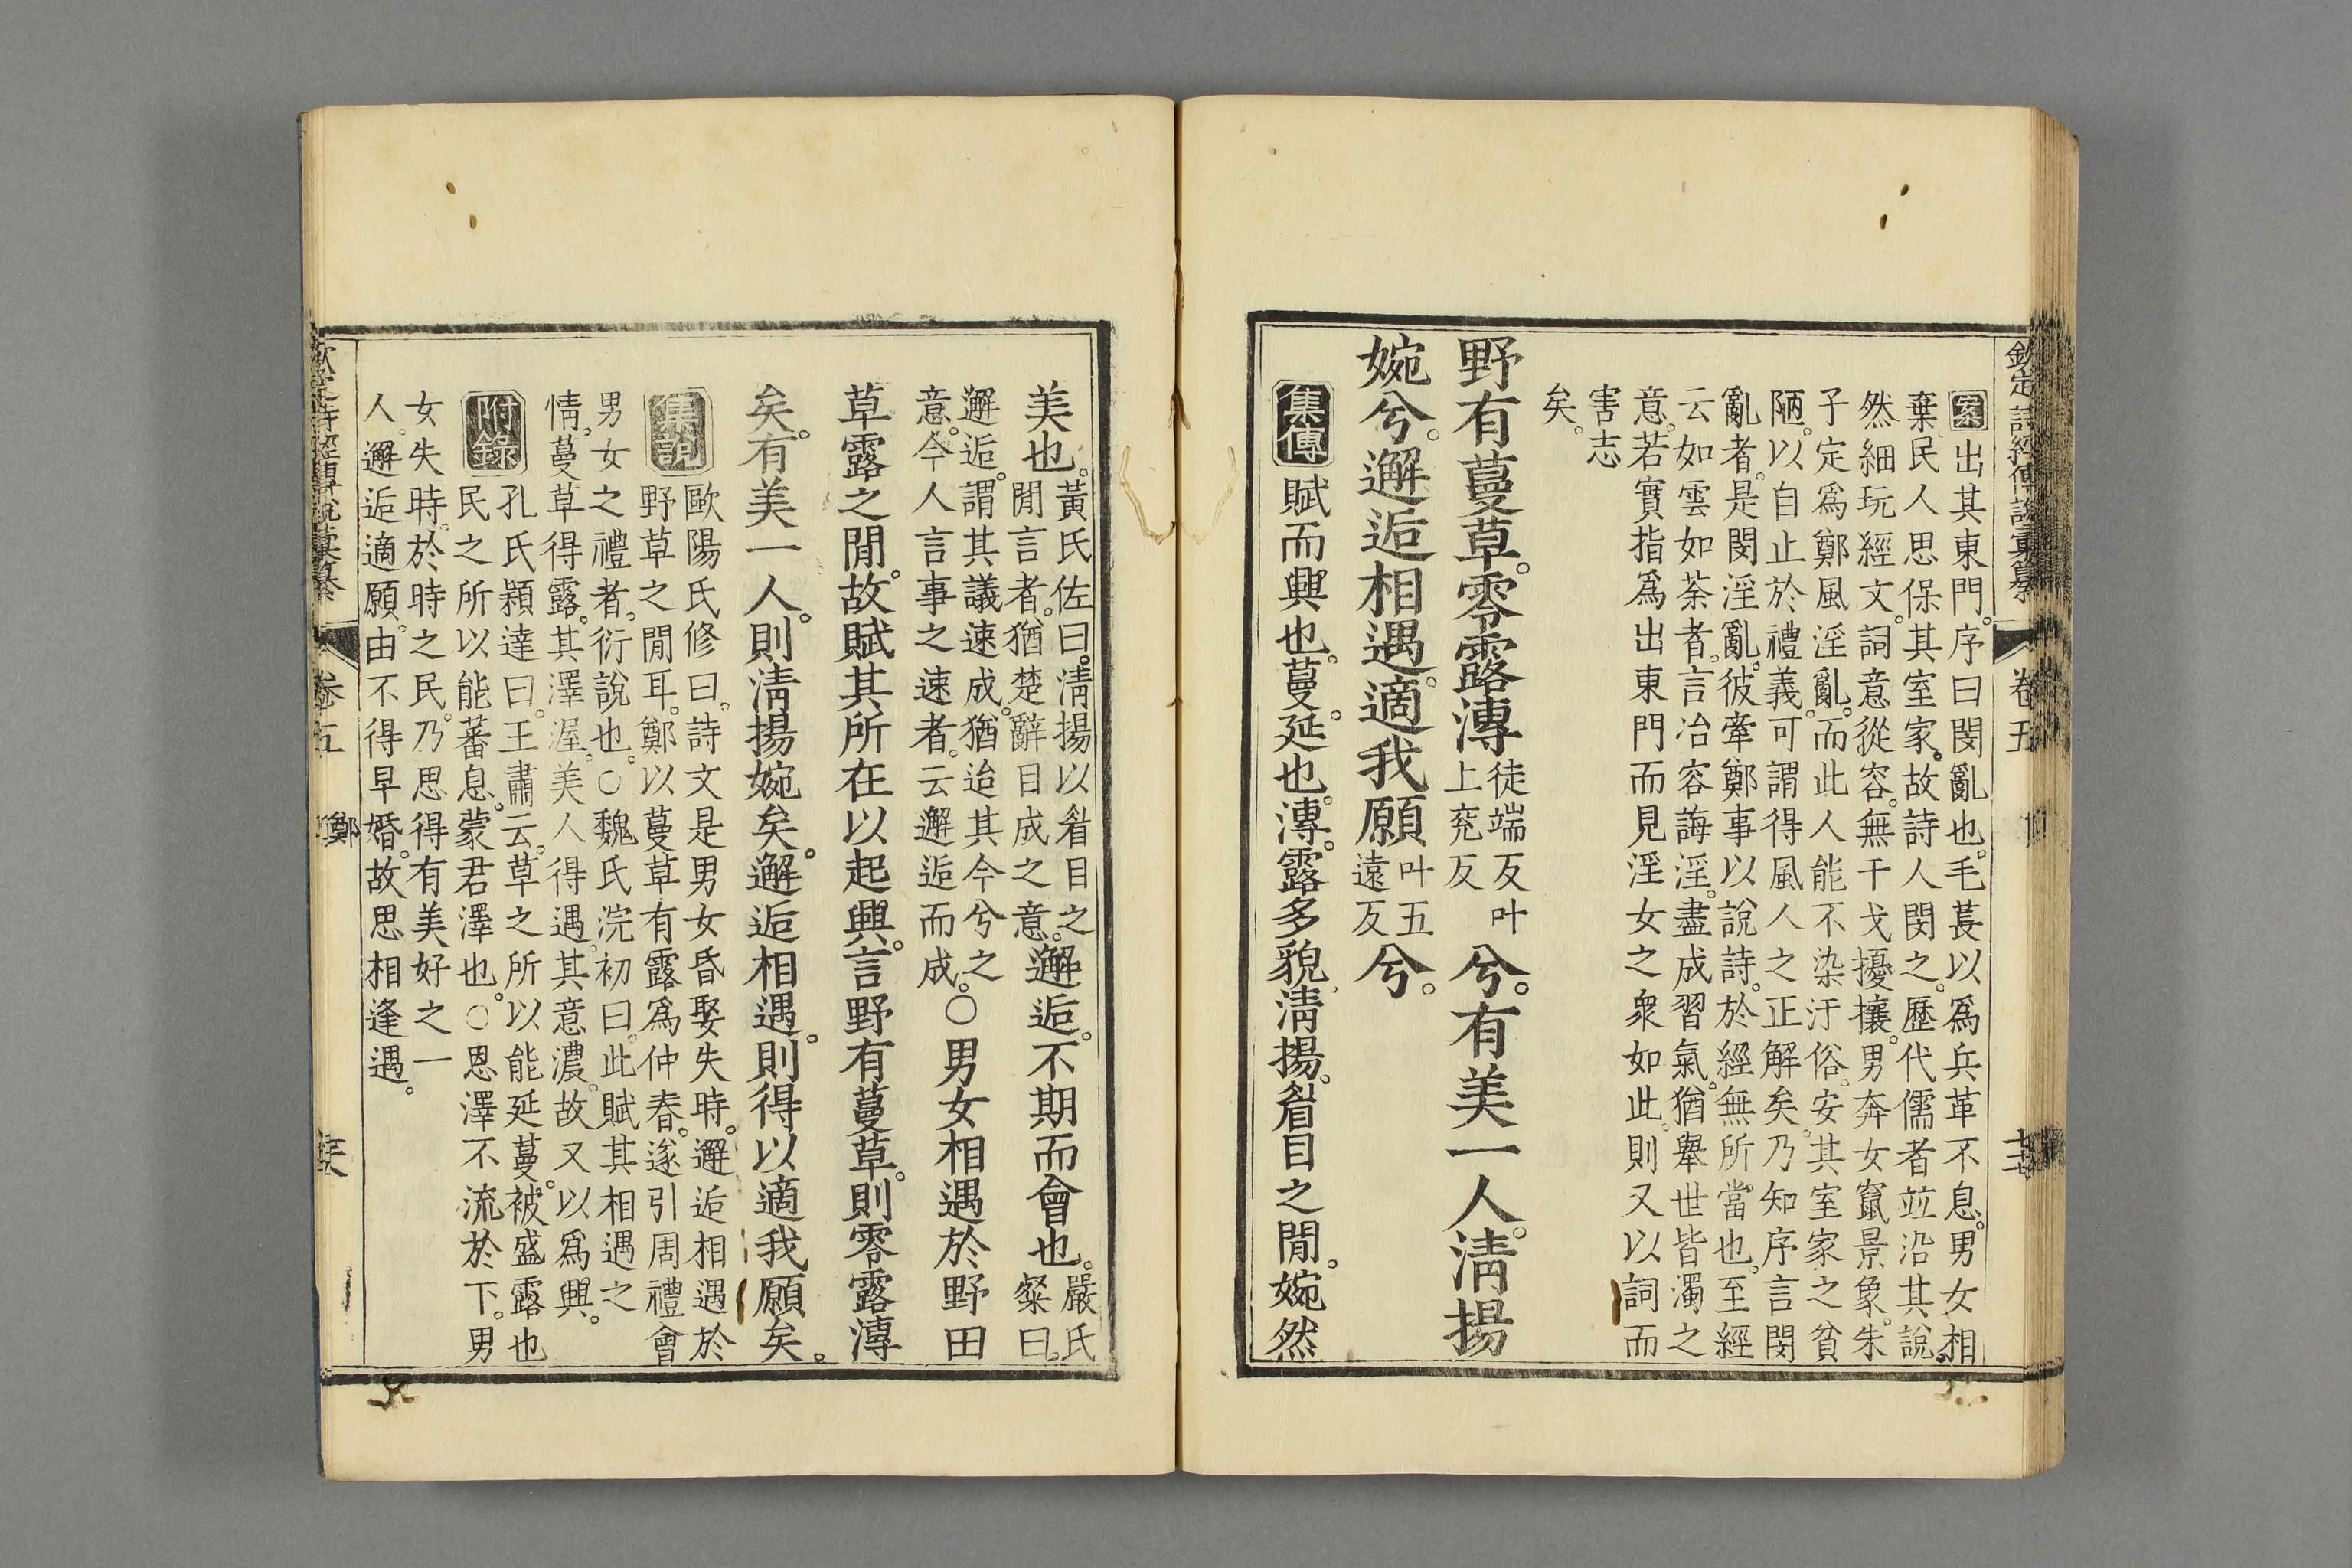 欽定詩經傳說彙纂 卷五
案出其東門。序曰閔亂也。毛萇以爲兵革不息。男女相
棄。民人思保其室家。故詩人閔之。歷代儒者竝沿其說。
然細玩經文。詞意從容。無干戈擾攘。男奔女竄景象。朱
子定爲鄭風淫亂。而此人能不染汙俗。安其室家之貧
陋。以自止於禮義。可謂得風人之正解矣。乃知序言閔
亂者。是閔淫亂。彼牽鄭事以說詩。於經無所當也。至經
云如雲如荼者。言冶容誨淫。盡成習氣。猶舉世皆濁之
意。若實指爲出東門而見淫女之衆如此。則又以詞而
害志
矣。
野有蔓草。零露漙徒端反叶上兖反兮。有美一人。淸揚
婉兮。邂逅相遇。適我願叶五遠反兮。
集傳賦而興也。蔓。延也。漙。露多貌。淸揚。眉目之閒。婉然
美也。黃氏佐曰。淸揚以眉目之閒言者。猶楚辭目成之意。邂逅。不期而會也。嚴氏粲曰。
邂逅。謂其議速成。猶迨其今兮之意。今人言事之速者。云邂逅而成。○男女相遇於野田
草露之閒。故賦其所在以起興。言野有蔓草。則零露漙
矣。有美一人。則淸揚婉矣。邂逅相遇。則得以適我願矣。
集說歐陽氏修曰。詩文是男女昏娶失時。邂逅相遇於
野草之閒耳。鄭以蔓草有露爲仲春。遂引周禮會
男女之禮者。衍說也。○魏氏浣初曰。此賦其相遇之
情。蔓草得露。其澤渥。美人得遇。其意濃。故又以爲興。
附錄孔氏穎達曰。王肅云。草之所以能延蔓。被盛露也
民之所以能蕃息。蒙君澤也。○恩澤不流於下。男
女失時。於時之民。乃思得有美好之一
人。邂逅適願。由不得早婚。故思相逢遇。
卷五 鄭